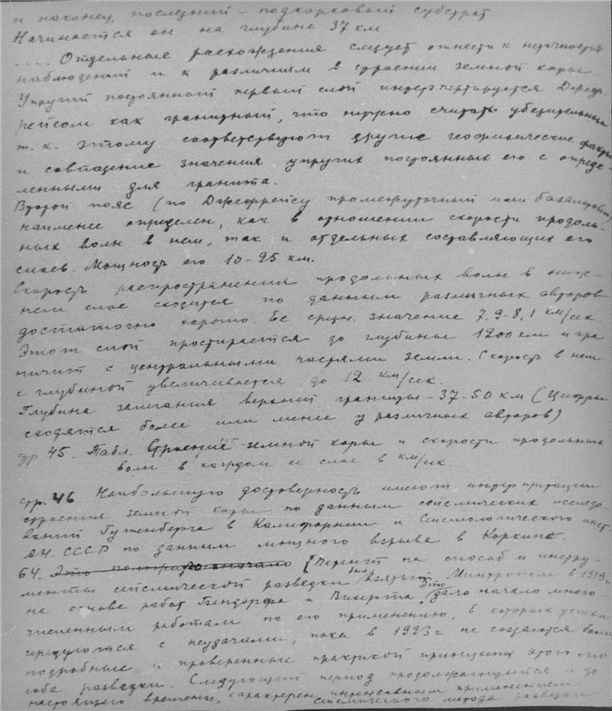 и наконец, последний - подкорковый субстрат
Начинается он на глубине 37 км
.... Отдельные расхождения следует отнести к неточности
наблюдений и к различиям в строении земной коры.
Упругий постоянный первый слой интерпретируется Джеф-
рейсом как гранитный, что нужно считать убедительным
т.к. этому соответствуют другие геофизические факты
и совпадение значения упругих постоянных его с опреде-
ленными для гранита.
Второй пояс (по Джеффрейсу промежуточный или базальтовый
наименее определен, как в отношении скорости продоль-
ных волн в нем, так и отдельных составляющих его
слоев. Мощность его 10-25 км.
Скорость распространения продольных волн в ниж-
нем слое сходится по данным различных авторов
достаточно хорошо. Ее средн. значение 7,9-8,1 км/сек
Этот слой простирается до глубины 1200 км и гра
ничит с центральными частями земли. Скорость в нем
с глубиной увеличивается до 12 км/сек.
Глубина залегания верхней границы - 37-50 км (Цифры
сходятся более или менее у различных авторов)
стр 45. Табл. Строение земной коры и скорости продольных
волн в каждом ее слое в км/сек
стр. 46 Наибольшую достоверность имеют интерпретации
строения земной коры по данным сейсмических исследо-
ваний Гутенберга в Калифорнии и Сейсмологического инст.
АН. СССР по данным мощного взрыва в Коркине.
64. Патент на способ и инстру-
менты сейсмической разведки был взятый Минтропом в 1919 г
на основе работ и Вихерта Это дало начало много
численным работам по его применению, в которых успехи
чередуются с неудачами, пока в 1923 г не создаются более
подробные и проверенные практикой принципы этого спо
соба разведки. Следующий период продолжающийся и до
настоящего времени, характерен интенсивным применением
сейсмического метода разведки